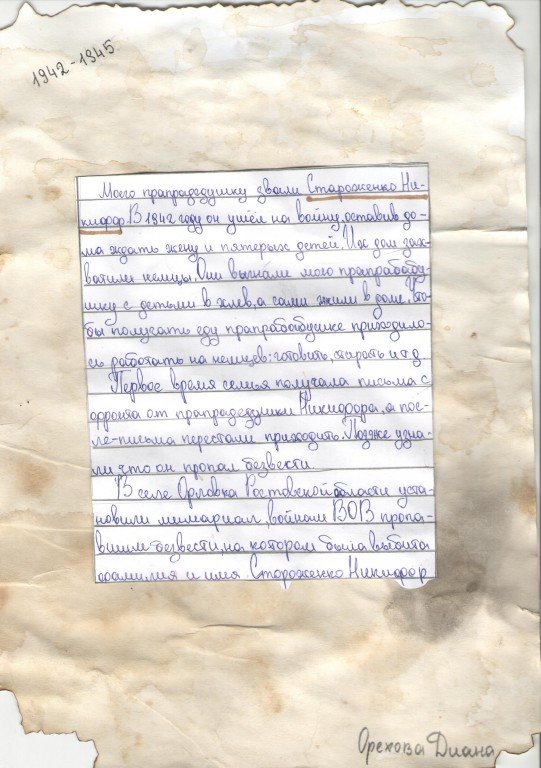 1942-1945
Моего прапрадедушку звали Староженко Ни-
кифор. В 1942 году он ушёл на войну, оставив до-
ма ждать жену и пятерых детей. Их дом зах-
ватили немцы. Они выгнали мою прапрабабу-
шку с детьми в хлев, а сами жили в доме. Что-
бы получать еду прапрабабушке приходило-
сь работать на немцев: готовить, стирать и т.д.
Первое время семья получала письма с
фронта от прапрадедушки Никифора, а пос-
ле-письма перестали приходить. Позже узна-
ли что он пропал безвести.
В селе Орловка Ростовской области уста-
новили мемариал войнам ВОВ пропа-
вшим безвести, на котором была выбита
фамилия и имя Стороженко Никифор
Орехова Диана